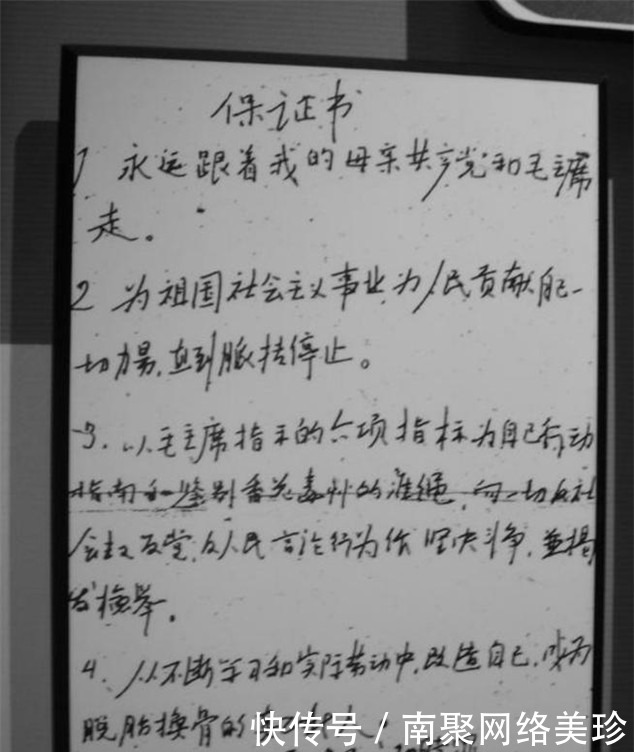 保证书
1 永远跟着我的母亲共产党和毛主席
走。
2 为祖国社会主义事业,为人民贡献自己一
切力量,直到脉搏停止。
3. 以毛主席指示的六项指标为自己行动
指南和鉴别香花毒草的准绳,向一切反社
会主义反党,反人民言论行为作坚决斗争,並揭
发检举。
4. 从不断学习和实际劳动中,改造自己,成为
脱胎换骨的
快传号/南聚网络美珍